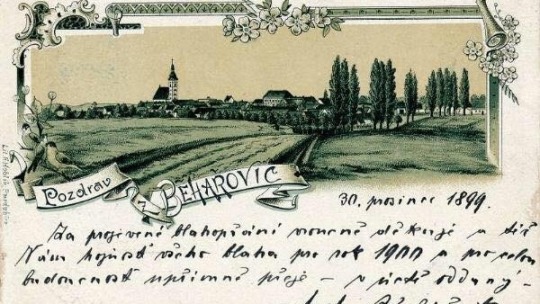 Pozdrav z BEHAROVIC
30. prosinec 1899.
Za projevené blahopřání vroucně děkuje a též
Vám hojnost všeho blaha pro rok 1900 a pro celou
budoucnost upřímně přeje – v úctě oddaný –